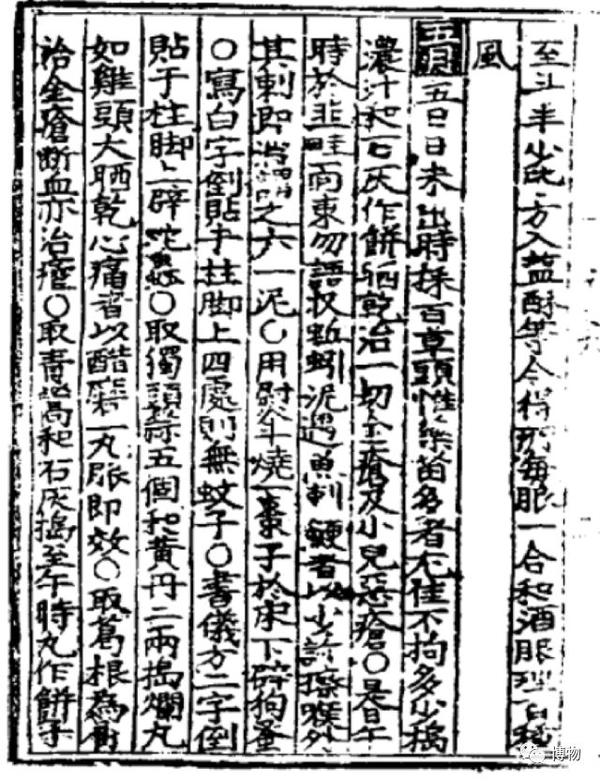 至斗半少 方入盐酥等令得所每服一合和酒服理百
風
五月 五日日未出時採百草頭惟藥苗多者尤佳不拘多少搗
濃汁和石灰作餅晒乾治一切金瘡及小兒惡瘡〇是日午
時於韭畦面東勿語收蚯蚓泥遇魚刺鯁者以少許擦喉外
其刺即消謂之六一泥〇用熨斗燒一棗子於床下辟狗蚤
〇寫白字倒貼于柱脚上四處則無蚊子〇書儀方二字倒
貼于柱脚上辟蛇〇取獨頭蒜五個和黃丹二兩搗爛丸
如雞頭大晒乾心痛者以醋磨一丸服即效〇取葛根為屑
治金瘡斷血亦治瘧〇取青蒿和石灰搗至午時丸作餅子
博物